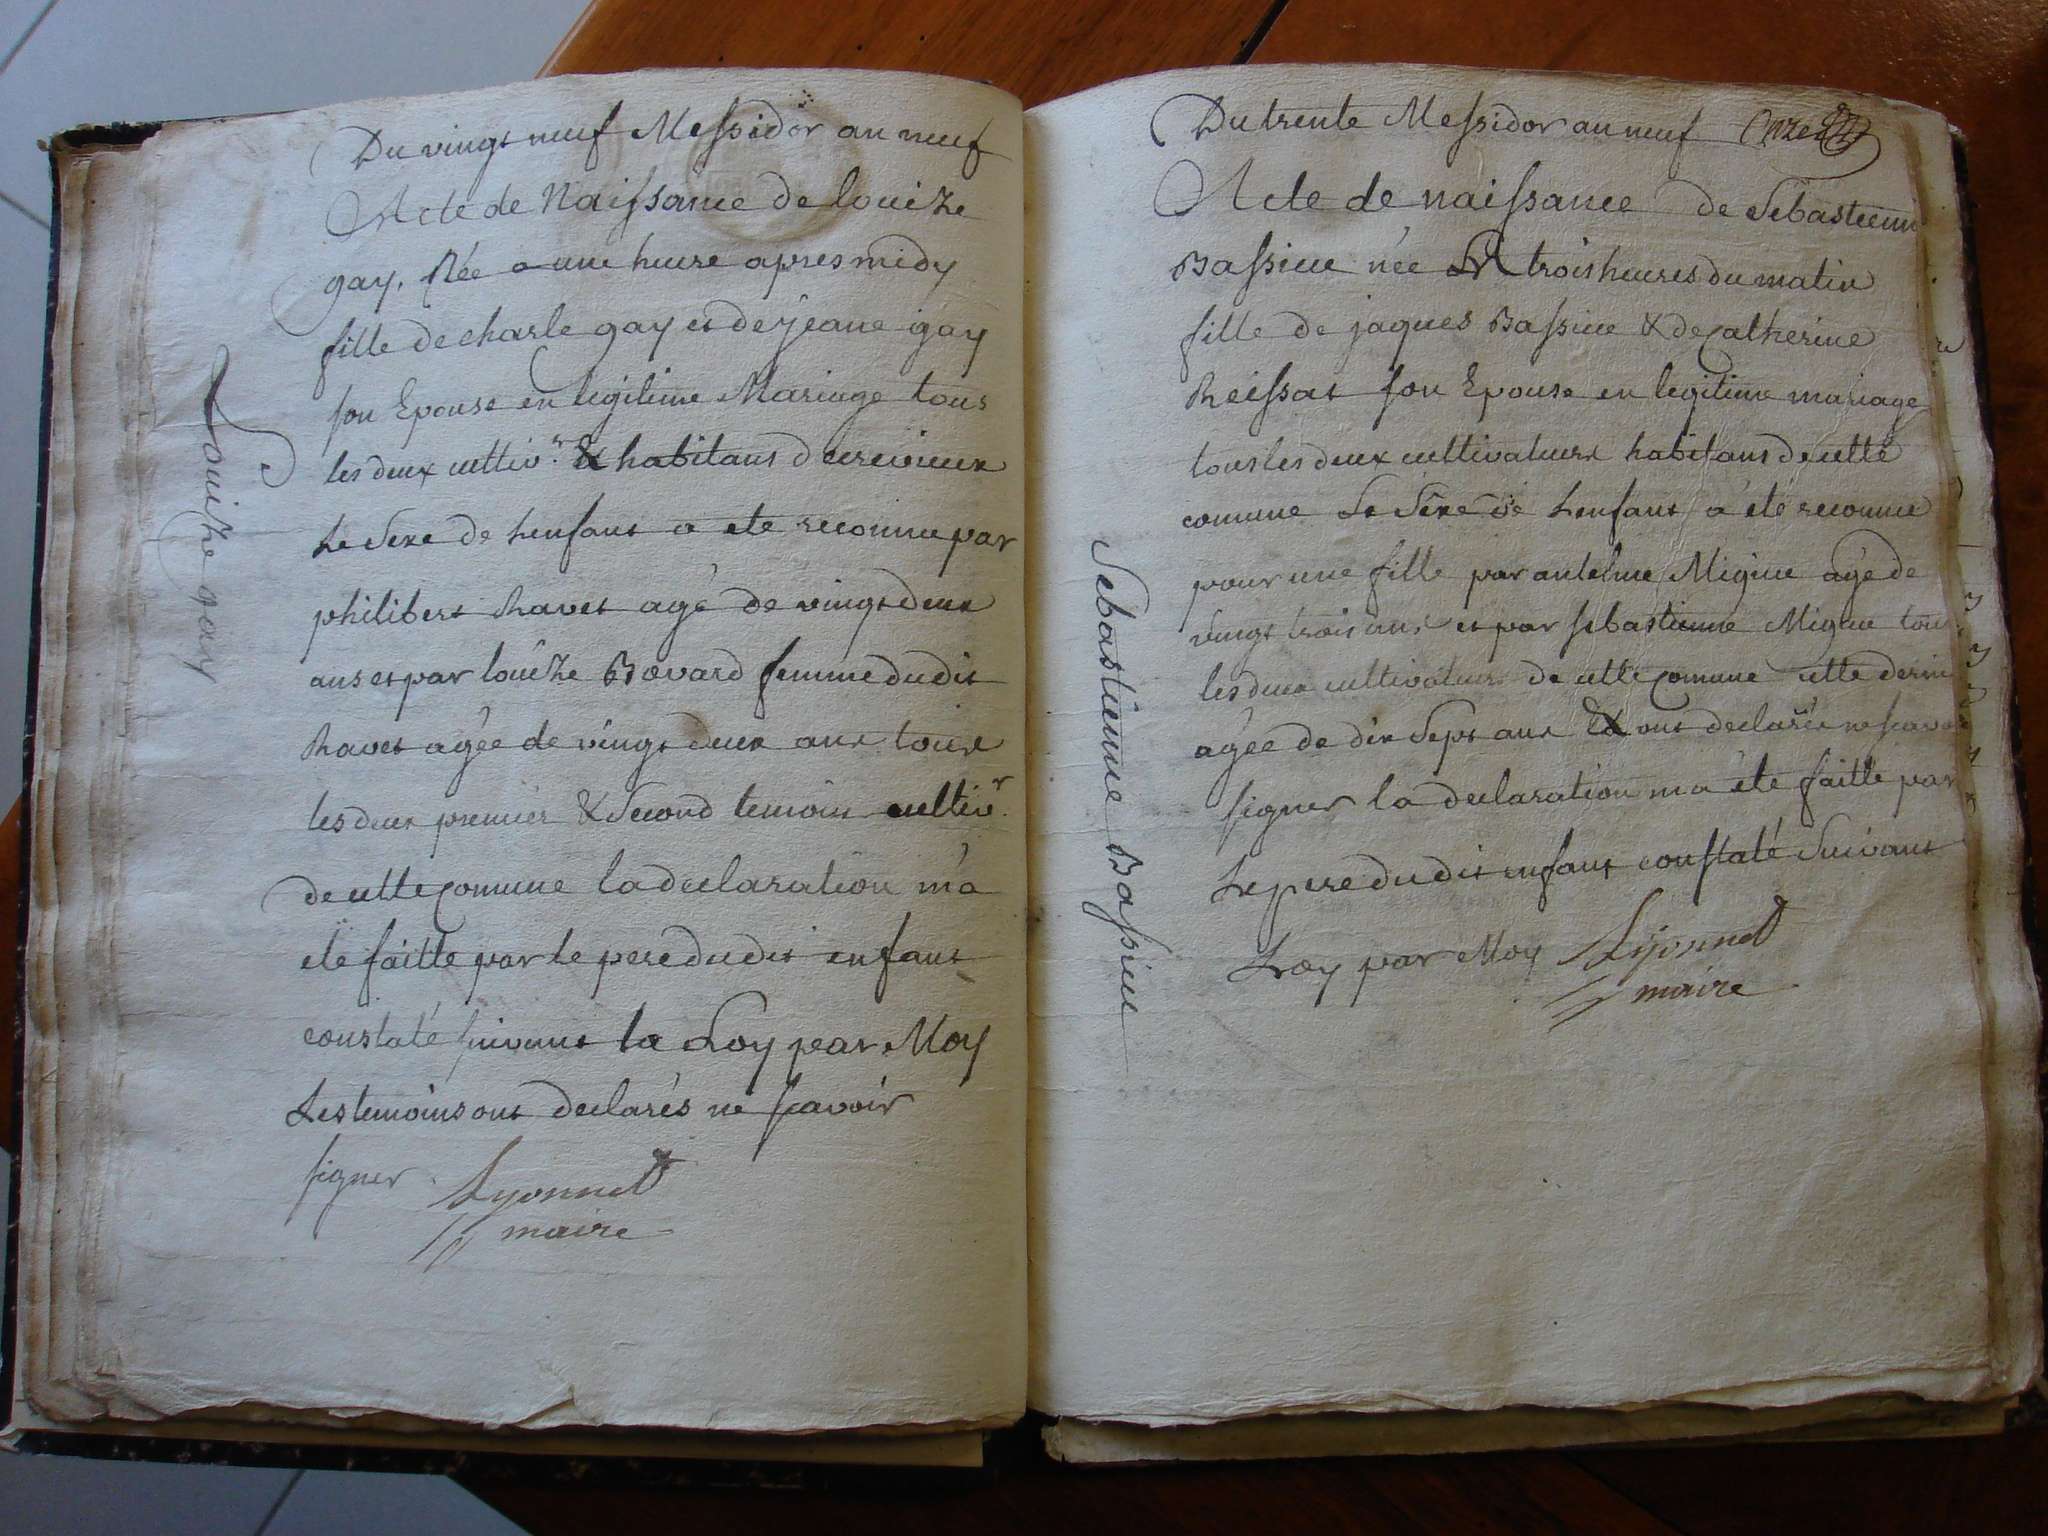 Du vingt neuf Messidor an neuf
Acte de Naissance de louize
gay, Née a une heure apres midy
fille de charle gay et de jeane gay
son Epouse en legitime Mariage tous
les deux cultivr. & habitans
Le Sexe de Lenfant a ete reconnu par
philibert Ravet agé de vingt deux
ans et par louize Bovard femme dudit
Ravet agée de vingt deux ans tous
les deux premier & Second temoin cultivr
de cette comune la declaration m'a
ete faitte par le pere dudit enfant
constaté suivant la Loy par Moy
Les temoins ont declarés ne scavoir
signer Lyonnet
maire
Louize gay
Du trente Messidor an neuf Onze
Acte de naissance de Sebastienn
Bassieu née A trois heures du matin
fille de jaques Bassieu & de Catherine
Reissat son Epouse en legitime mariage
tous les deux cultivateurs habitans de cette
comune Le Sexe de Lenfant a été reconnu
pour une fille par antelme Migieu agé de
vingt trois ans et par sebastienne Migieu tous
les deux cultivateurs de cette Comune cette derni
agée de dix Sept ans & ont declarés ne scavoi
signer la declaration m'a été faitte par
Le pere dudit enfant constaté Suivant
Loy par Moy Lyonnet
maire
Sebastienne Bassieu